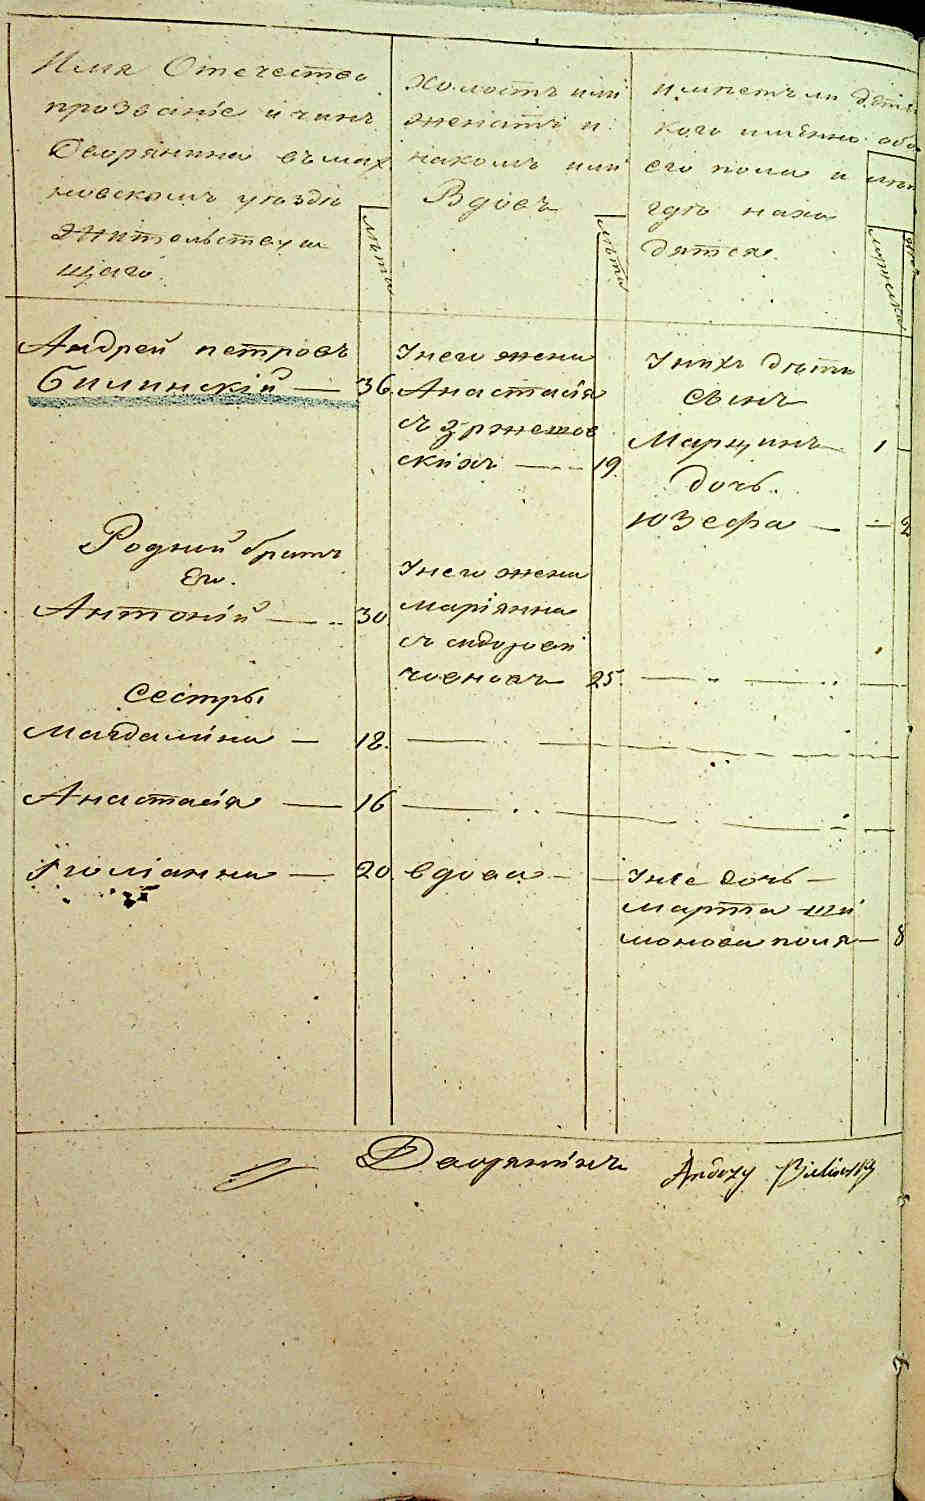 Имя Отечество
прозваніе и чинъ
Дворянина въ мах
новскомъ уѣздѣ
жительствую
щаго.
лѣта
Холостъ или
женатъ и
накомъ или
Вдовъ
лѣта
имѣетъ ли дѣтей
кого имянно обо
его пола и
гдѣ нахо
дятся.
лѣта
мужска
Андрей петровъ
Билинскій — 36
Унего жена
Анастасія
съ
скихъ — 19
Унихъ дѣти
сынъ
Марцинъ 1
дочь.
Юзефа — 2
Родний братъ
Его.
Антоній — 30
Унего жена
маріянна
съ
човновъ 25.
сестры
Магдалина — 18.
Анастасія — 16
Юліанна — 20
вдова
Унее дочь —
марта ши
монова поля — 8
Дворянинъ Andrzy Bieliński